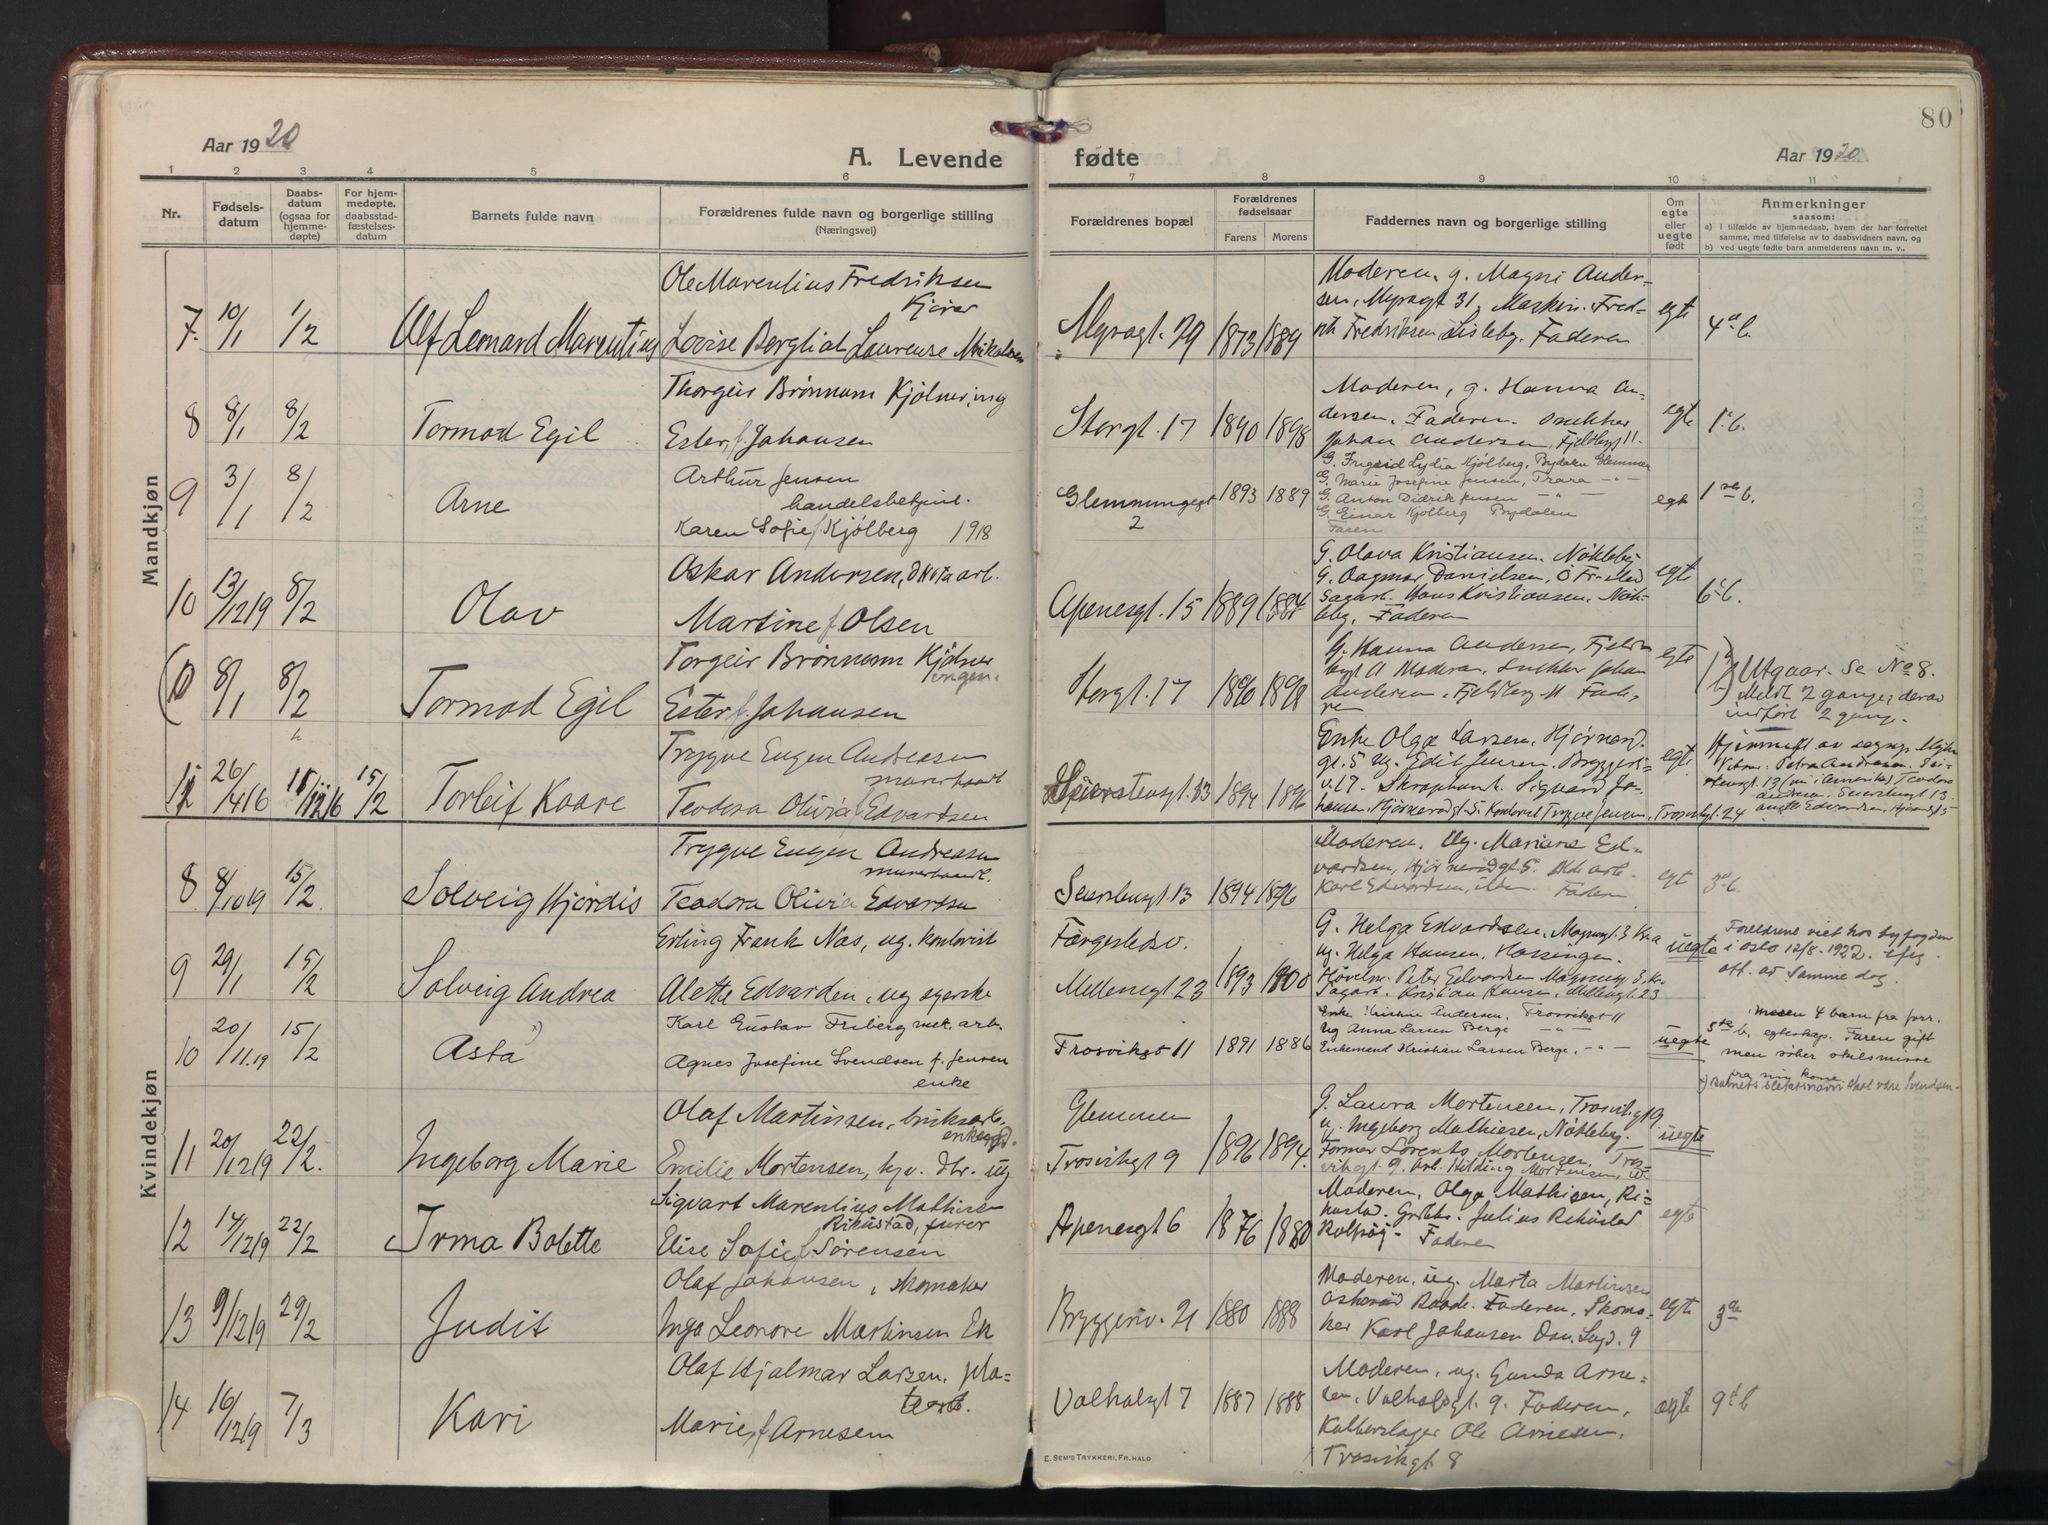 80
Aar 1920
A. Levende
fødte
Aar 1920
1 2 3 4 5 6 7 8 9 10 11
Nr.
Fødsels-
datum
Daabs-
datum
(ogsaa for
hjemme-
døpte)
For hjem-
medøpte,
daabsstad-
fæstelses-
datum
Barnets fulde navn
Forældrenes fulde navn og borgerlige stilling
(Næringsvei)
Forældrenes bopæl
Forældrenes
fødselsaar
Farens
Morens
Faddernes navn og borgerlige stilling
Om
egte
eller
uegte
født
Anmerkninger
saasom:
a) i tilfælde av hjemmedaab, hvem der har forrettet
samme, med tilføielse av to daabsvidners navn, og
b) ved uegte fødte barn anmelderens navn m. v..
Mandkjøn
7. 10/1 1/2
Alf Lennard Marentius
Ole Marentius Fredriksen
Lovise Bergliot Laurense Mikalsen
Myragt. 29 1873 1889
Moderen, g. Magni Ander-
sen, Myragt 31, Maskin. Fred-
rik Fredriksen Lisleby. Faderen
egte
4de b.
8 8/1 8/2
Tormod Egil
Thorgeir Brønnum Kjølner, ing
Ester f. Johansen
Storgt. 17 1890 1898
Moderen, g. Hanna An-
dersen, Faderen. Snekker
Johan Andersen, Fjeldbygt 11.
egte
1ste b.
9 3/1 8/2
Arne
Arthur Jensen
handelsbetjent.
Karen Sofie f. Kjølberg 1918
Glemmengegt
2
1893 1889
G. Ingrid Lydia Kjølberg, Bydalen Glemmen
G. Marie Josefine Jensen, Trara -"-
G. Anton Didrik Jensen -"-
G. Einar Kjølberg Bydalen
Faren
egte
1ste b.
10 13/12 19 8/2
Olav
Oskar Andersen,
Martine f. Olsen
Apenesgt. 15 1889 1884
G. Olava Kristiansen. Nøkleby
G. Dagmar Danielsen, Ø Fr-stad
Sagarb. Hans Kristiansen, Nøk-
leby, Faderen
egte
6te b.
(10 8/1 8/2
Tormod Egil
Torgeir Brønnum Kjølner
ingen.
Ester f. Johansen
Storgt. 17 1890 1898
G. Hanna Andersen, Fjeld-
bygt 11 Moderen, Snekker Johan
Andersen, Fjeldbyg 11 Fade-
ren
egte
Utgaar. Se No 8.
Meldt 2 gange, derav
indført 2 gange.
11 26/4 16 11/12 16 15/2
Torleif Kaare
Trygve Eugen Andreasen
murerhandl
Teodora Olivia f. Edvardsen
13 1894 1896
Enke Olga Larsen, Hjørnerd.
gt. 5 Ug. Edit Jensen. Bryggeri-
v. 17 - Skraphand. Sigvard Jo-
hansen, Hjørnerødgt. 5. Kontorist Trygve Jensen, Trosvikgt. 24
egte
Kvindekjøn
8 8/10 19 15/2
Solveig Hjørdis
Trygve Eugen Andreasen
murerhandl.
Teodora Olivia Edvardsen
Seiersbugt. 13 1894 1896
Moderen, Ug. Mariane Ed-
vardsen, Hjørnerødgt. 5.
Karl Edvardsen, Faderen
egt
3de b.
9 29/1 15/2
Solveig Andrea
Erling Frank Næs, ug. kontorist
Alette Edvardsen, ug syerske
Færgestedsv.
Mellemgt 23 1893 1900
G. Helga Edvardsen, Magnusgt. 3 Kr.a
ug. Helga Hansen, Hassingen.
Høvelm. Peter Edvardsen Magnusgt 3, Kr.
Sagarb. Kristian Hansen, Mellemgt. 23
uegte
Foreldrene viet hos byfogden
i Oslo 12/8. 1922. ifølg.
att. av samme dag.
10 20/11.19 15/2
Asta
Karl Gustav Friberg mek. arb.
Agnes Josefine Svendsen f. Jensen
enke
Trosvikgt 11 1891 1886
Enke Kristine Andersen, Trosvikgt 11
Ug Anna Larsen Berge -"-
Enkemand Kristian Larsen Berge, -"-
uegte
5te b.
Moren 4 barn fra forr.
egteskap. Faren gift
men søker skilsmisse
fra sin kone
Barnets slektsnavn skal være Svendsen
11 20/12 19 22/2.
Ingeborg Marie
Olaf Martinsen, bruksarb.
Emilie Mortensen, ug
Glemmen
Trosvikgt 9 1896 1894.
G. Laura Mortensen, Trosvikgt 9.
u. Ingeborg Mathiesen, Nøkleby.
Former Lorents Mortensen, Tros-
vikgt. 9. Arb. Hilding Mortensen, id.
uegte
12 14/12 19 22/2
Irma Bolette
Sigvart Marentius Mathisen
Rikustad, furer
Elise Sofie f. Sørensen
Apenesgt 6 1876 1880
Moderen, Olga Mathisen, Ri-
kustad. Julius Rikustad
Rolfsøy - Faderen
egte
13 9/12 19 29/2
Judit
Olaf Johansen, skomaker
Inga Leonore Martinsen Ek
Bryggeriv. 21 1880 1888
Moderen, ug. Marta Martinsen
Raade. Faderen, Skoma-
ker Karl Johansen 9
egte
3de
14 16/12 19 7/3
Kari
Olaf Hjalmar Larsen, pla-
tearb.
Marie f. Arnesen
Valhalgt 7 1887 1888
Moderen, ug. Gunda Arne-
sen, Valhalgt 9. Faderen,
Kobberslager Ole Arnesen,
Trosvikgt 8
egte
9de b
E. SEM'S TRYKKERI, FR.HALD